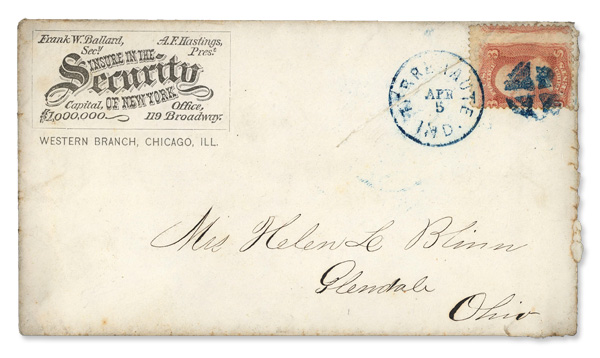 Frank W. Ballard, A.F. Hastings,
Secy. Prest.
INSURE IN THE
Security
OF NEW YORK
Capital, Office,
$1,000,000. 119 Broadway.
WESTERN BRANCH, CHICAGO, ILL.
TERRE HAUTE
APR
5
IND.
3 3
Mrs Helen L Blinn
Glendale
Ohio